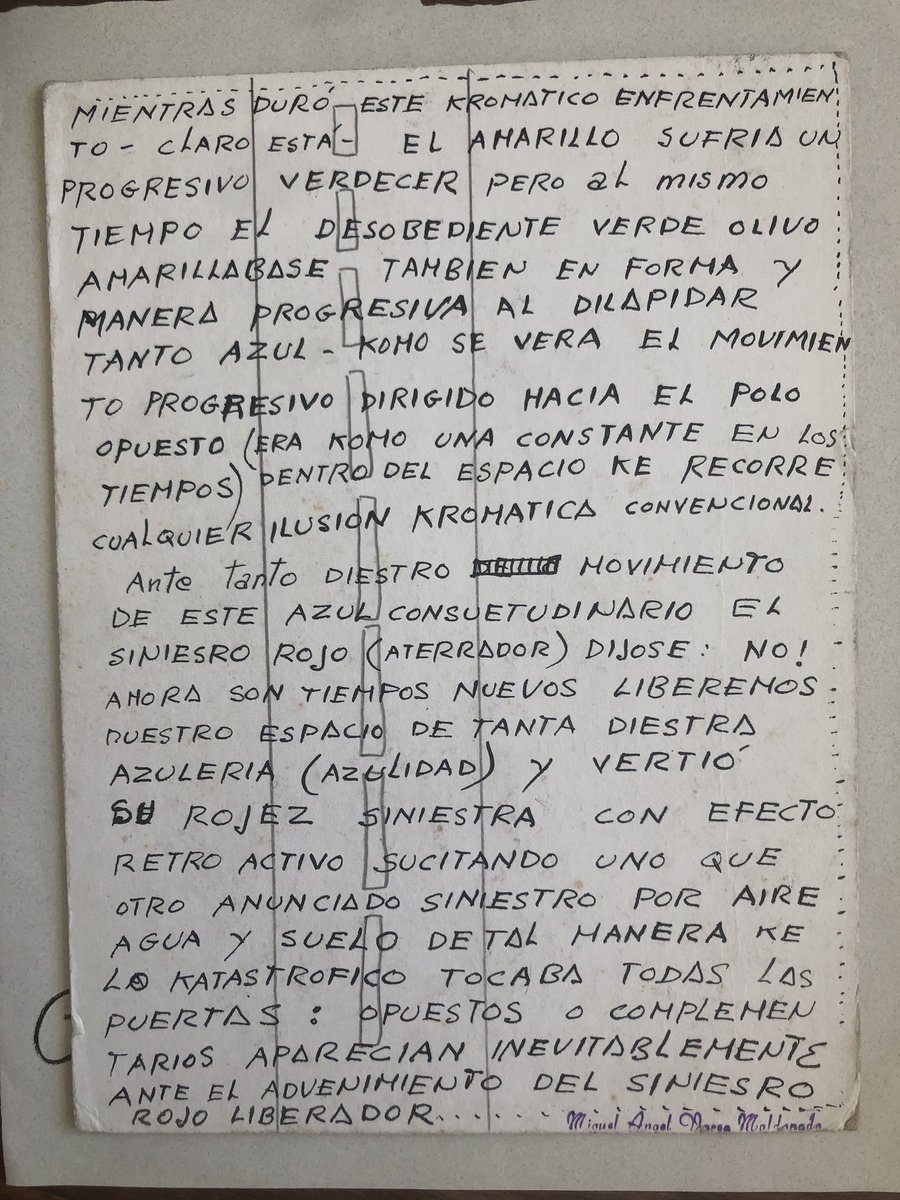 MIENTRAS DURÓ ESTE KROMATICO ENFRENTAMIEN
TO - CLARO ESTÁ - EL AMARILLO SUFRIA UN
PROGRESIVO VERDECER PERO al mismo
TIEMPO EL DESOBEDIENTE VERDE OLIVO
AMARILLABASE TAMBIEN EN FORMA Y
MANERA PROGRESIVA AL DILAPIDAR
TANTO AZUL - KOMO SE VERA EL MOVIMIEN
TO PROGRESIVO DIRIGIDO HACIA EL POLO
OPUESTO (ERA KOMO UNA CONSTANTE EN LOS
TIEMPOS) DENTRO DEL ESPACIO KE RECORRE
CUALQUIER ILUSION KROMATICA CONVENCIONAL.
Ante tanto DIESTRO MOVIMIENTO
DE ESTE AZUL CONSUETUDINARIO EL
SINIESRO ROJO (ATERRADOR) DIJOSE: NO!
AHORA SON TIEMPOS NUEVOS LIBEREMOS
NUESTRO ESPACIO DE TANTA DIESTRA
AZULERIA (AZULIDAD) Y VERTIÓ
SU ROJEZ SINIESTRA CON EFECTO
RETRO ACTIVO SUCITANDO UNO QUE
OTRO ANUNCIADO SINIESTRO POR AIRE
AGUA Y SUELO DE TAL MANERA KE
LO KATASTROFICO TOCABA TODAS LAS
PUERTAS: OPUESTOS O COMPLEMEN
TARIOS APARECIAN INEVITABLEMENTE
ANTE EL ADVENIMIENTO DEL SINIESRO
ROJO LIBERADOR......
Miguel Angel Maldonado